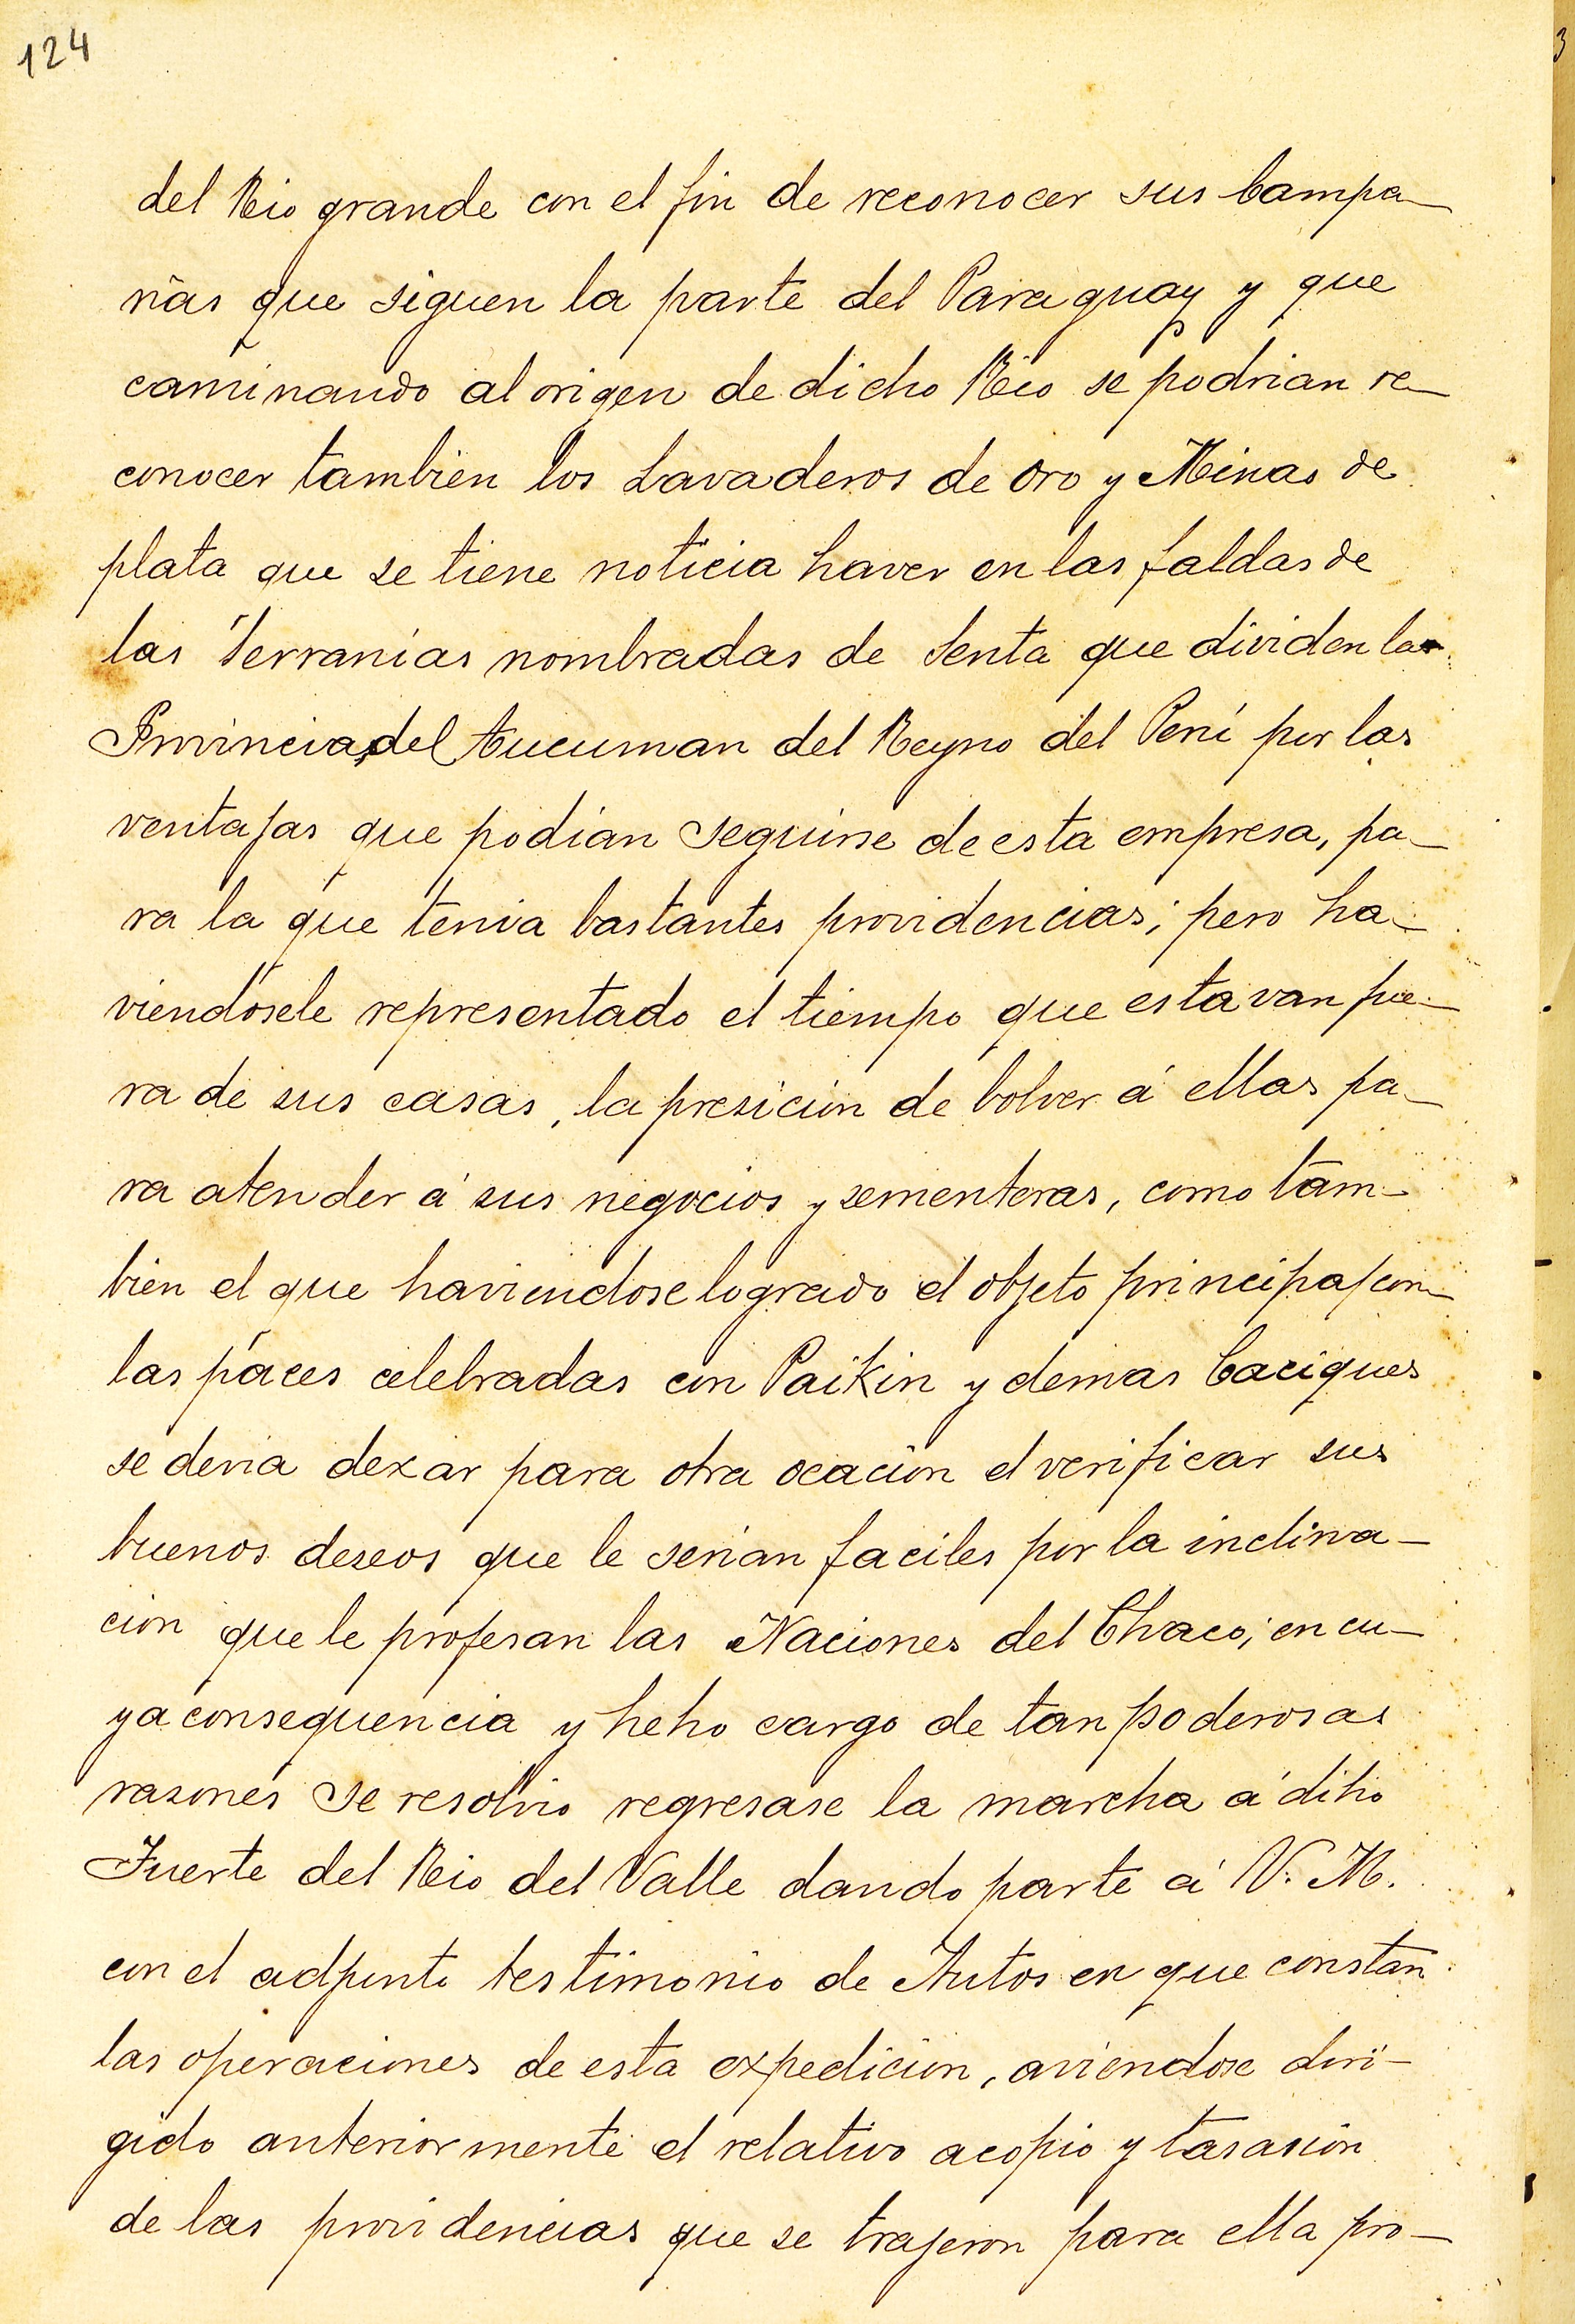 124
del Rio grande con el fin de reconocer sus Campa-
ñas que siguen la parte del Paraguay y que
caminando al origen de dicho Rio se podrian re-
conocer tambien los Lavaderos de oro y Minas de
plata que se tiene noticia haver en las faldas de
las Serranias nombradas de Senta que dividen la
Provincia del Tucuman del Reyno del Perú por las
ventajas que podian seguirse de esta empresa, pa-
ra la que tenia bastantes providencias; pero ha-
viendosele representado el tiempo que estavan fue-
ra de sus casas, la presicion de bolver á ellas pa-
ra atender á sus negocios y sementeras, como tam-
bien el que haviendose logrado el objeto principal con
las paces celebradas con Paikin y demas Caciques
se devia dexar para otra ocacion el verificar sus
buenos deseos que le serian faciles por la inclina-
cion que le profesan las Naciones del Chaco; en cu-
ya consequencia y heho cargo de tan poderosas
razones se resolvio regresase la marcha á diho
Fuerte del Rio del Valle dando parte á V. M.
con el adjunto testimonio de Autos en que constan
las operaciones de esta expedicion, aviendose diri-
gido anteriormente el relativo acopio y tasasion
de las providencias que se trajeron para ella pro-